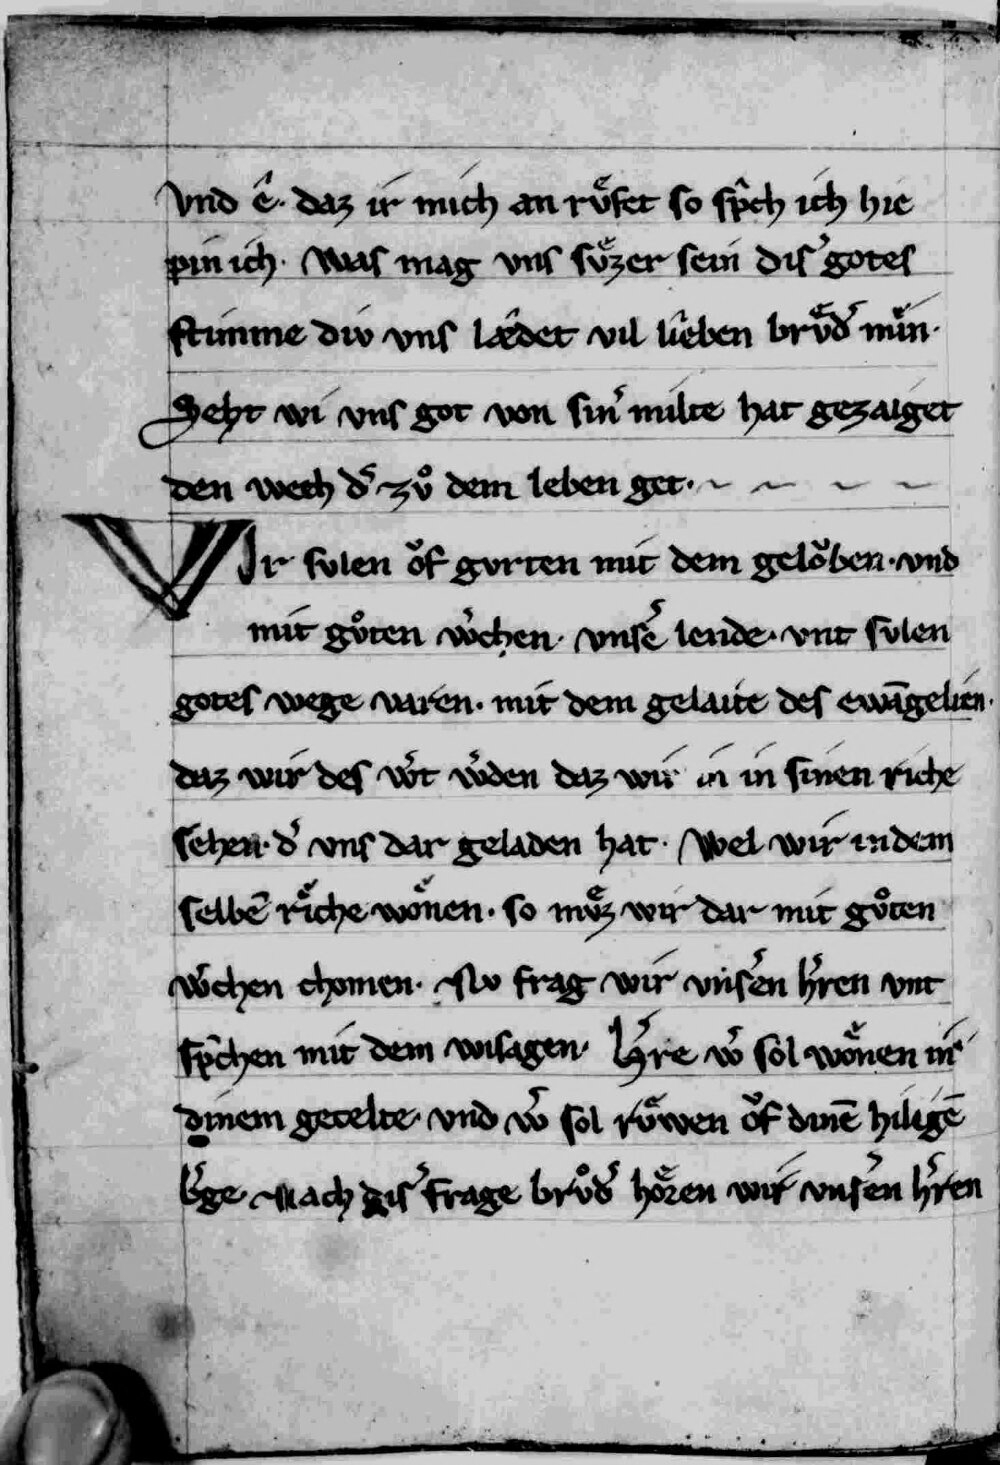 vnd ê· daz ir mich an rvͤfet so sp̂ch ich hie
pin ich· Was mag vns svͤzer sein dis᾽ gotes
stimme div vns lædet vil lieben brvͤd᾽ min·
Seht wi vns got von sin᾽ milte hat gezaiget
den wech d᾽ zvͦ dem leben get· ~ ~ ~ ~
WIr svlen oͮf gvrten mit dem geloͮben· vnd
mit gvͦten w᾽chen· vnsē lende· vnt svlen
gotes wege varen· mit dem gelaite des ewāgelien·
daz wir des w᾽t w᾽den daz wir in in sinen riche
sehen· d᾽ vns dar geladen hat· Wel wir in dem
selbē riͤche woͤnen· so mvͤz wir dar mit gvͦten
w᾽chen chomen· Nv frag wir vns᾽en h᾽ren vnt
sp᾽chen mit dem wisagen· H᾽re w᾽ sol woͤnen in
dinem getelte· vnd w᾽ sol rvͤwen oͮf dinē hiligē
b᾽ge· Nach dis᾽ frage brvͦd᾽ hoͤren wir vns᾽en h᾽ren